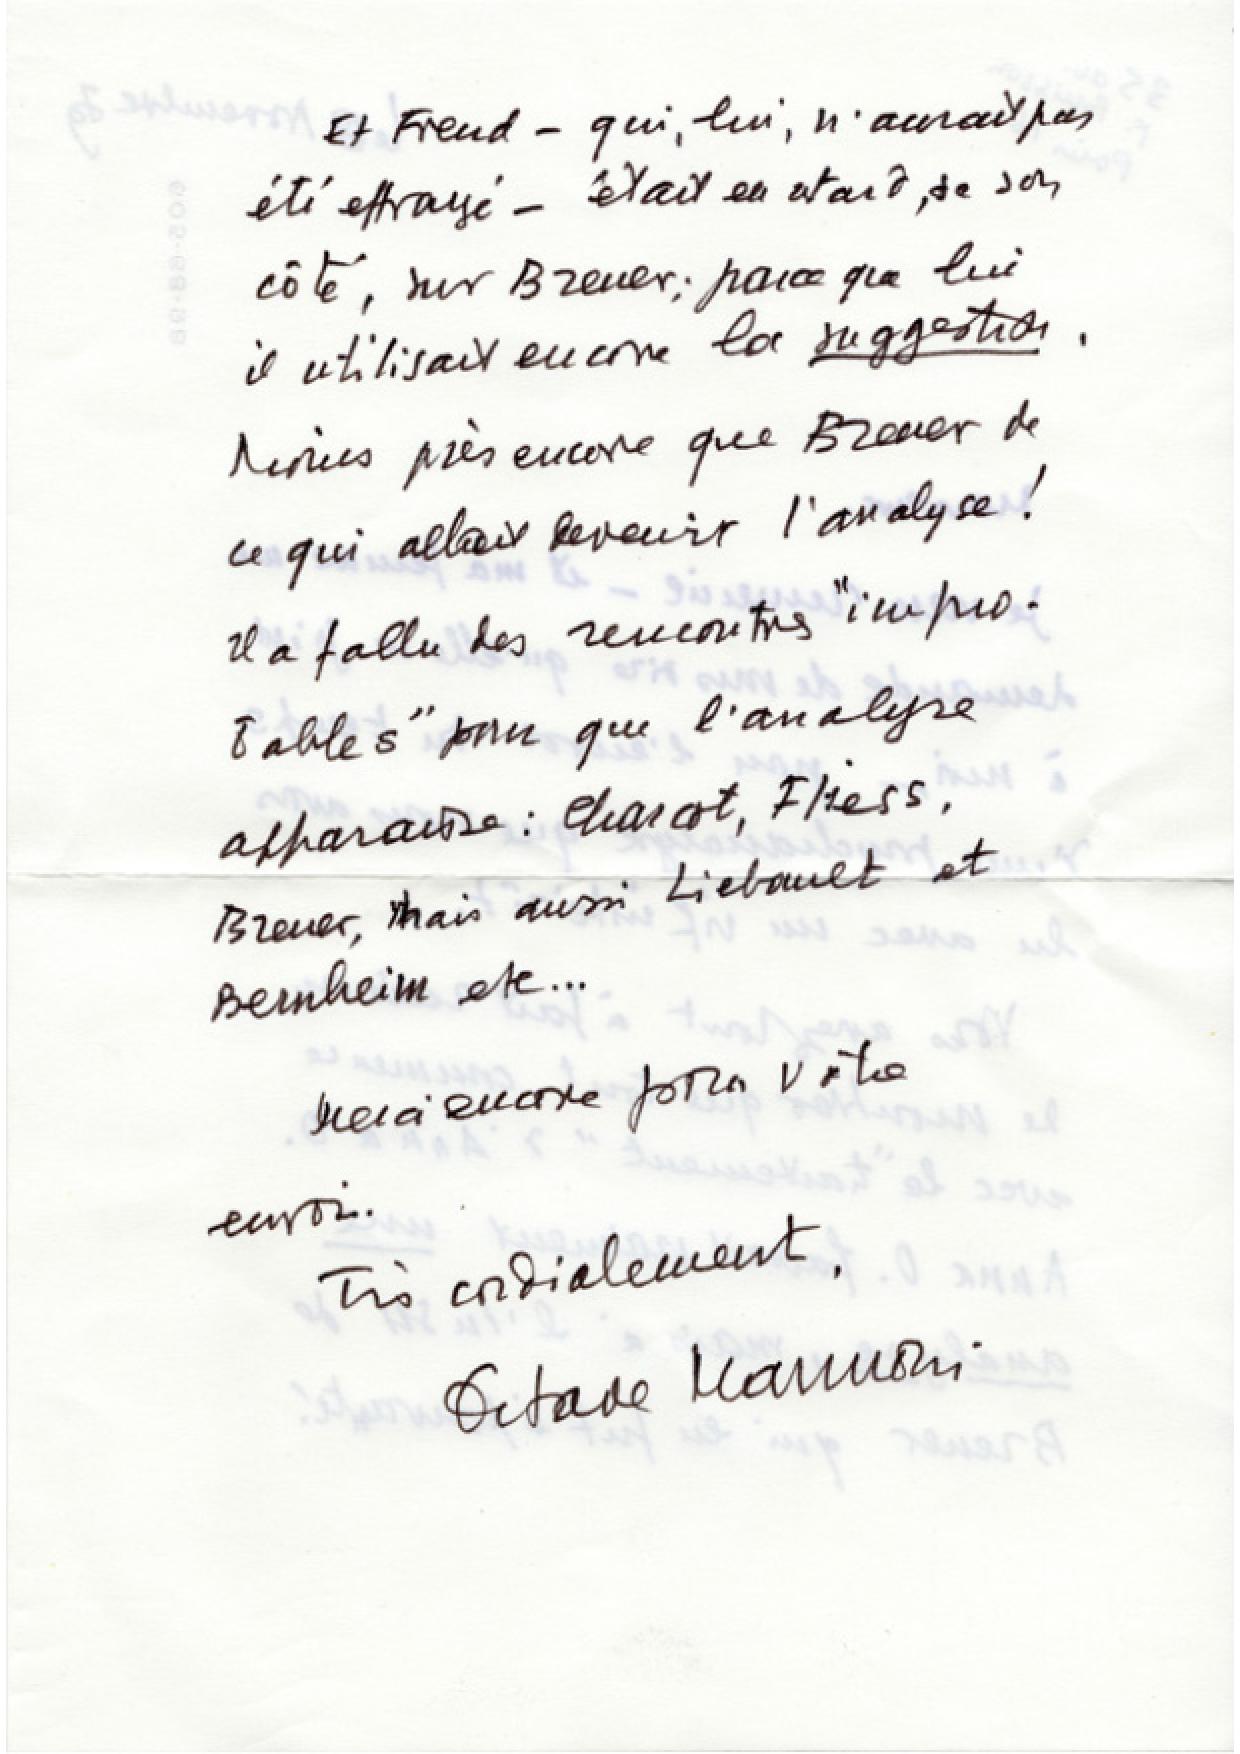 Et Freud – qui, lui, n'aurait pas
été effrayé – était en retard, de son
côté, sur Breuer; parce que lui
il utilisait encore la suggestion.
Moins près encore que Breuer de
ce qui allait devenir l'analyse!
Il a fallu des rencontres "impro-
bables" pour que l'analyse
apparaisse: Charcot, Fliess,
Breuer, mais aussi Liebault et
Bernheim etc...
Merci encore pour votre
envoi.
Très cordialement,
Octave Mannoni